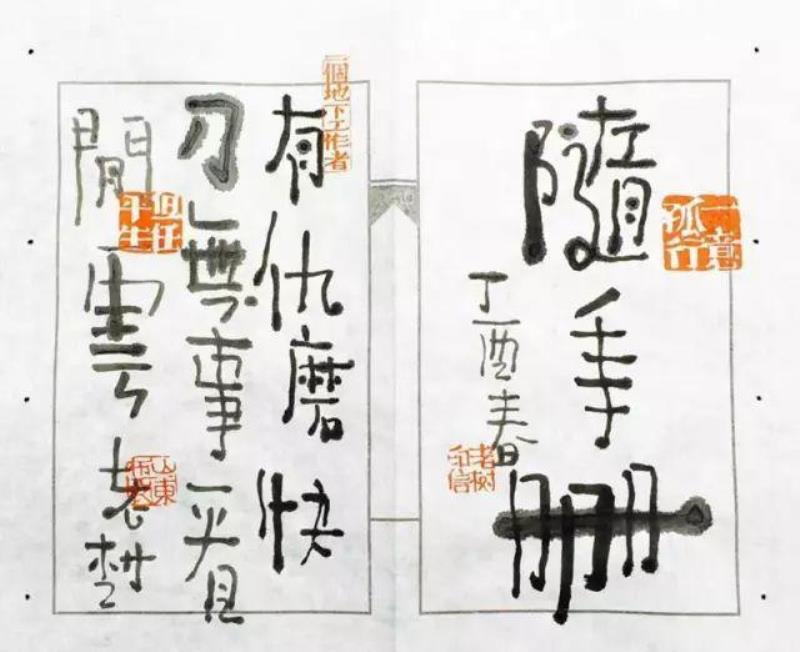 一意孤行
隨手冊
丁酉春
老树
一個地下工作者
有仇磨快
刀無事看
閒雲
平生
老樹
山東